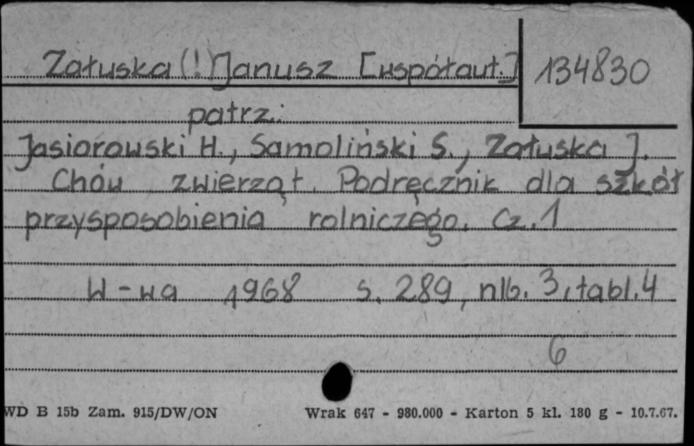 Załuska (!) Janusz [współaut.] 134830
patrz:
Jasiorowski H., Samoliński S., Załuska J.
Chów zwierząt. Podręcznik dla szkół
przysposobienia rolniczego. Cz. 1
W-wa 1968 s. 289, nlb. 3, tabl. 4
6
WD B 15b Zam. 915/DW/ON Wrak 647 - 980.000 - Karton 5 kl. 180 g - 10.7.67.